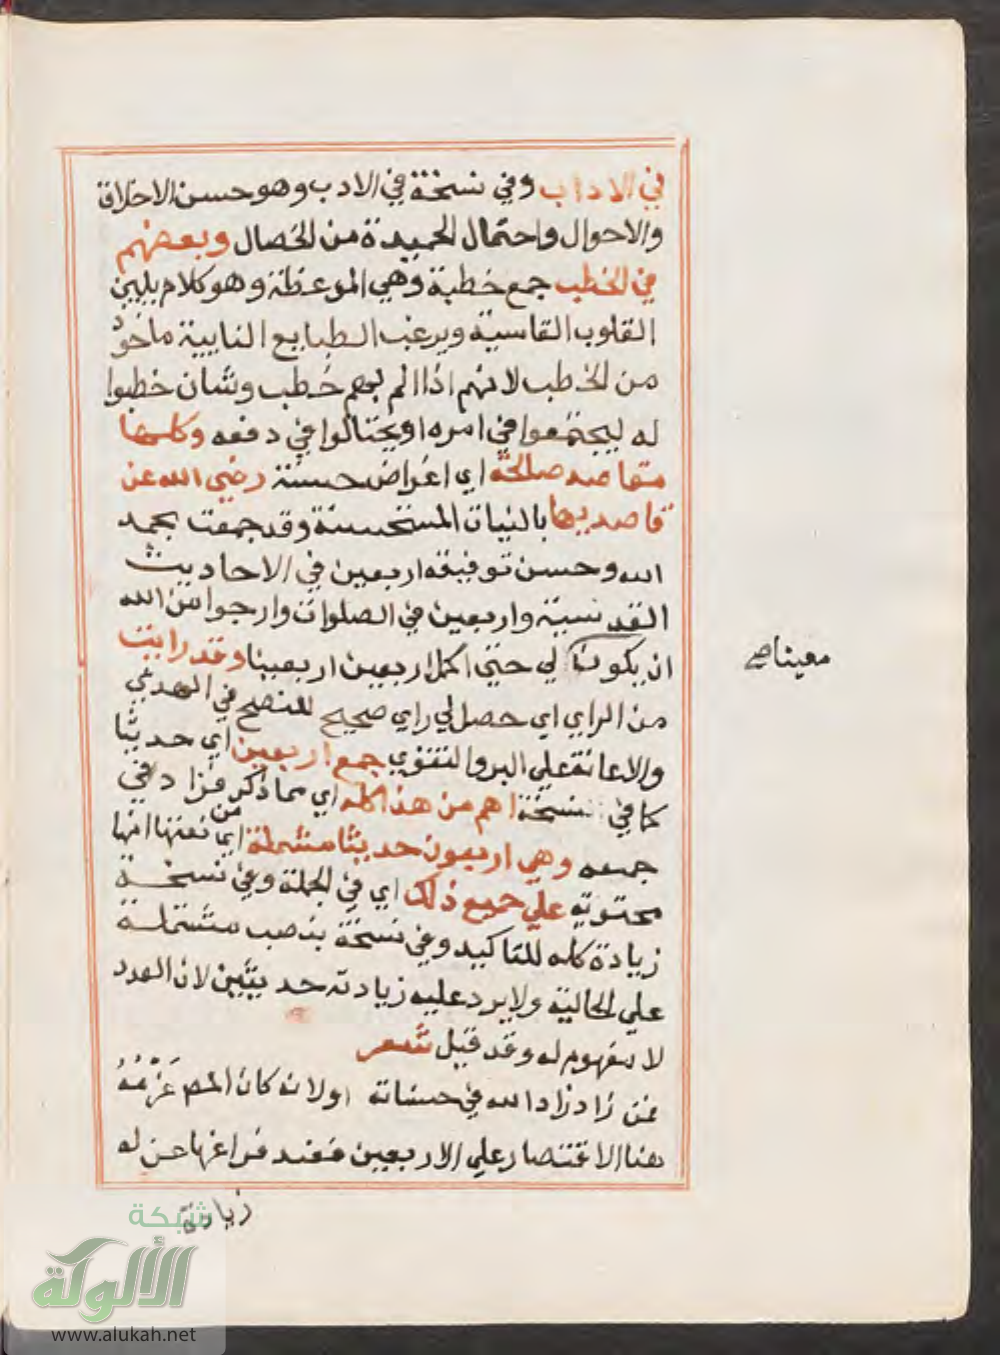 في الاداب وفي نسخة في الادب وهو حسن الاخلاق
والاحوال واحتمال الحميدة من الخصال وبعضهم
في الخطب جمع خطبة وهي الموعظة وهو كلام يلين
القلوب القاسية ويرغب الطبايع النابية ماخوذ
من الخطب لانهم اذا الم بهم خطب وشان خطبوا
له ليجتمعوا في امره او يحتالوا في دفعه وكلها
مقاصد صالحة اي اغراض حسنة رضي الله عن
قاصديها بالنيات المستحسنة وقد جمعت بحمد
الله وحسن توفيقه اربعين في الاحاديث
القدسية واربعين في الصلوات وارجوا من الله
ان يكون لي حتى اكمل اربعين اربعينا وقد رايت
معينا صح
من الراي اي حصل لي راي صحيح للنصح في الهدي
والاعانة علي البر والتقوي جمع اربعين اي حديثا
كما في نسخة اهم من هذا كله اي مما ذكر فزاد في
جمعه وهي اربعون حديثا مشتملة اي من نعتها انها
محتوية علي جميع ذلك اي في الجملة وفي نسخة
زيادة كله للتاكيد وفي نسخة بنصب مشتملة
علي الحالية ولا يرد عليه زيادته حديثين لان العدد
لا مفهوم له وقد قيل شعر
من زاد زاد الله في حسناته اولانه كان المص عَزْمُهُ
هنا الاقتصار علي الاربعين فعند فراغها عن له
زيادة
شبكة
الألوكة
www.alukah.net